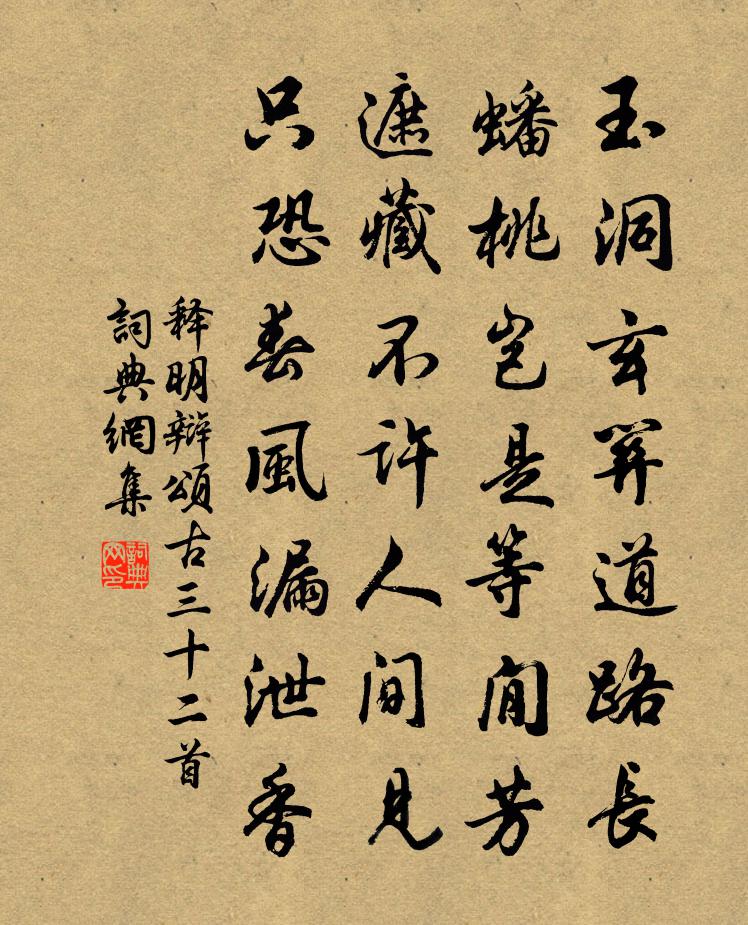 玉洞玄關道路長
蟠桃豈是等閒芳
遮藏不許人間見
只恐春風漏泄香
释明辯頌古三十二首
詞典網集
詞典网印